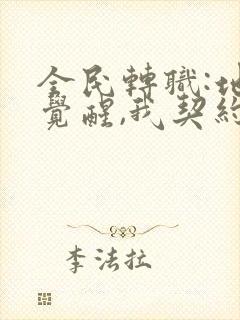 全民轉職:地
覺醒,我契約
李法拉